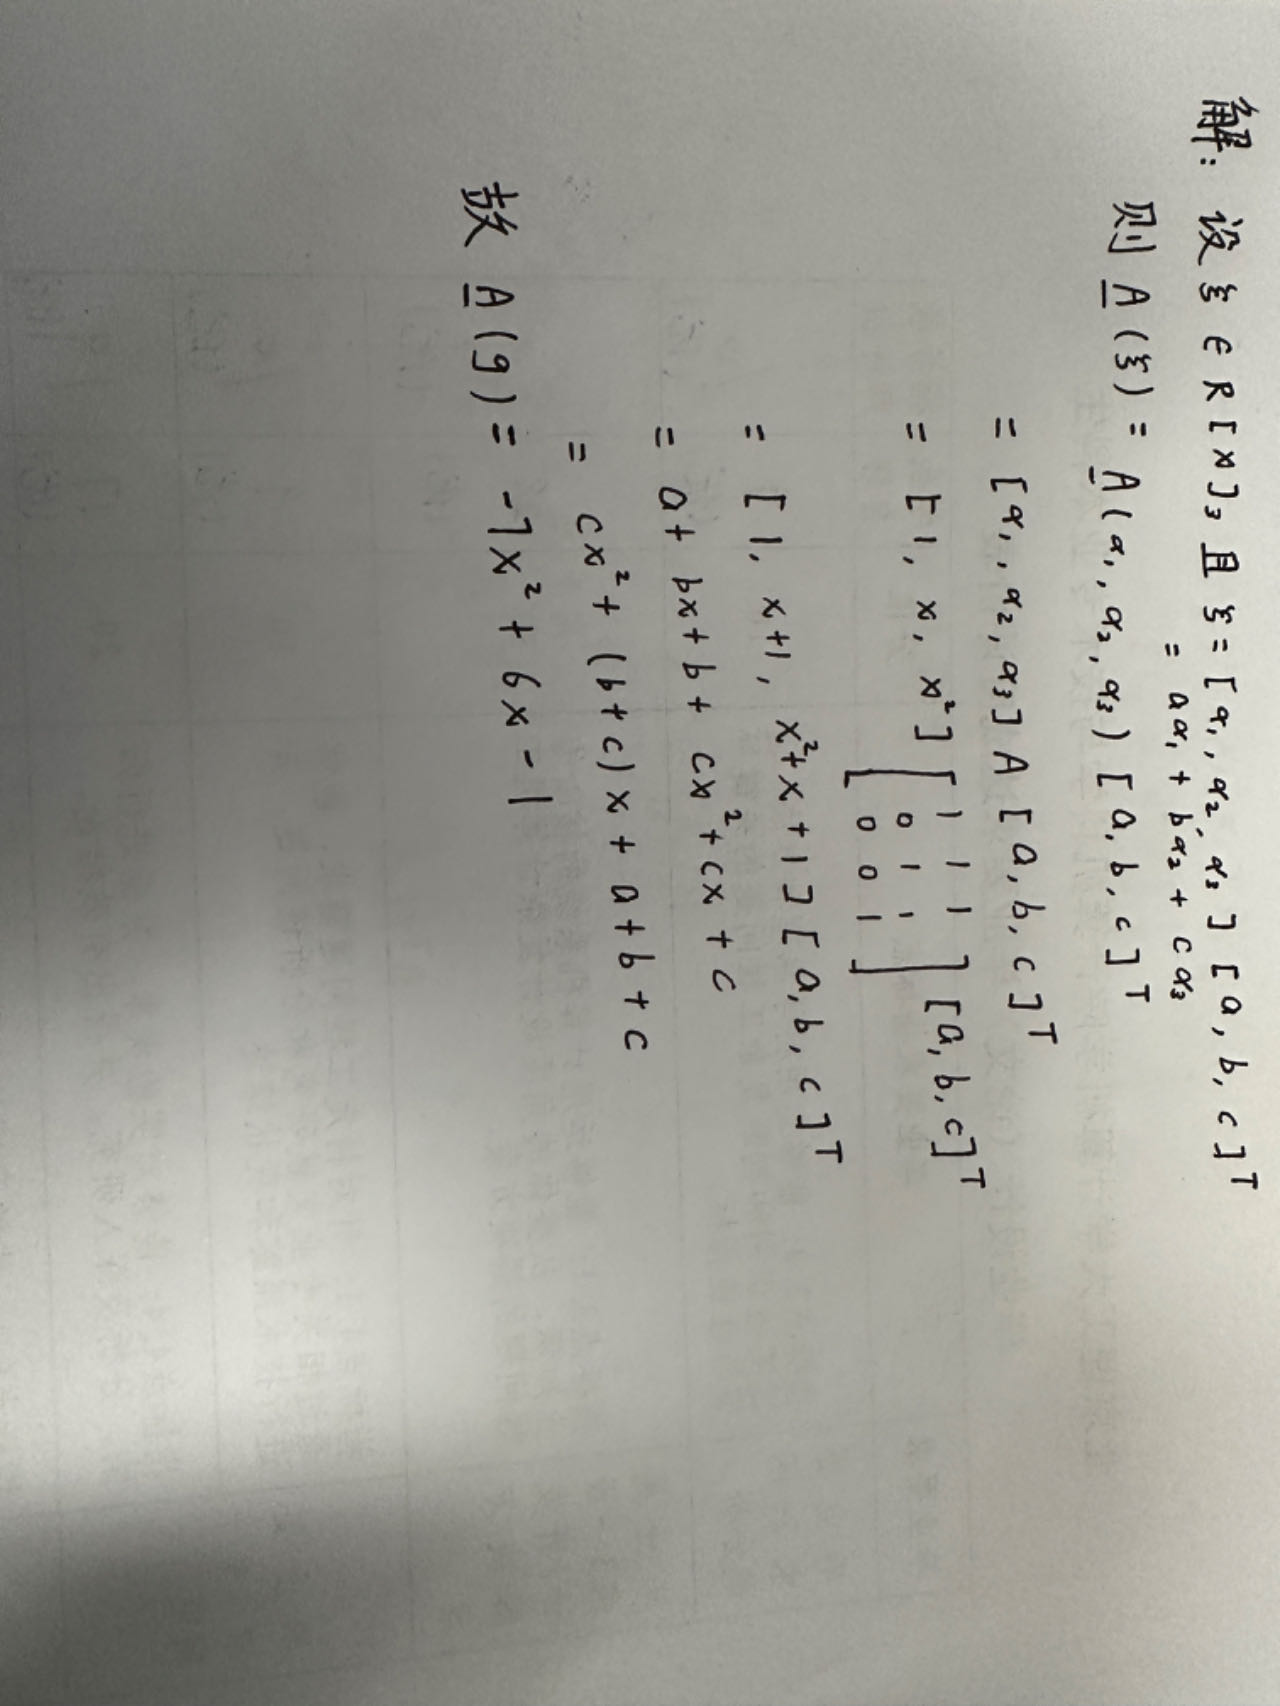 解: 设 ξ ∈ R[x]₃ 且 ξ = [α₁, α₂, α₃] [a, b, c]ᵀ
= aα₁ + bα₂ + cα₃
则 A(ξ) = A(α₁, α₂, α₃) [a, b, c]ᵀ
= [α₁, α₂, α₃] A [a, b, c]ᵀ
= [1, x, x²] [1 1 1
0 1 1
0 0 1] [a, b, c]ᵀ
= [1, x+1, x²+x+1] [a, b, c]ᵀ
= a + bx + b + cx² + cx + c
= cx² + (b+c)x + a+b+c
故 A(g) = -7x² + 6x - 1